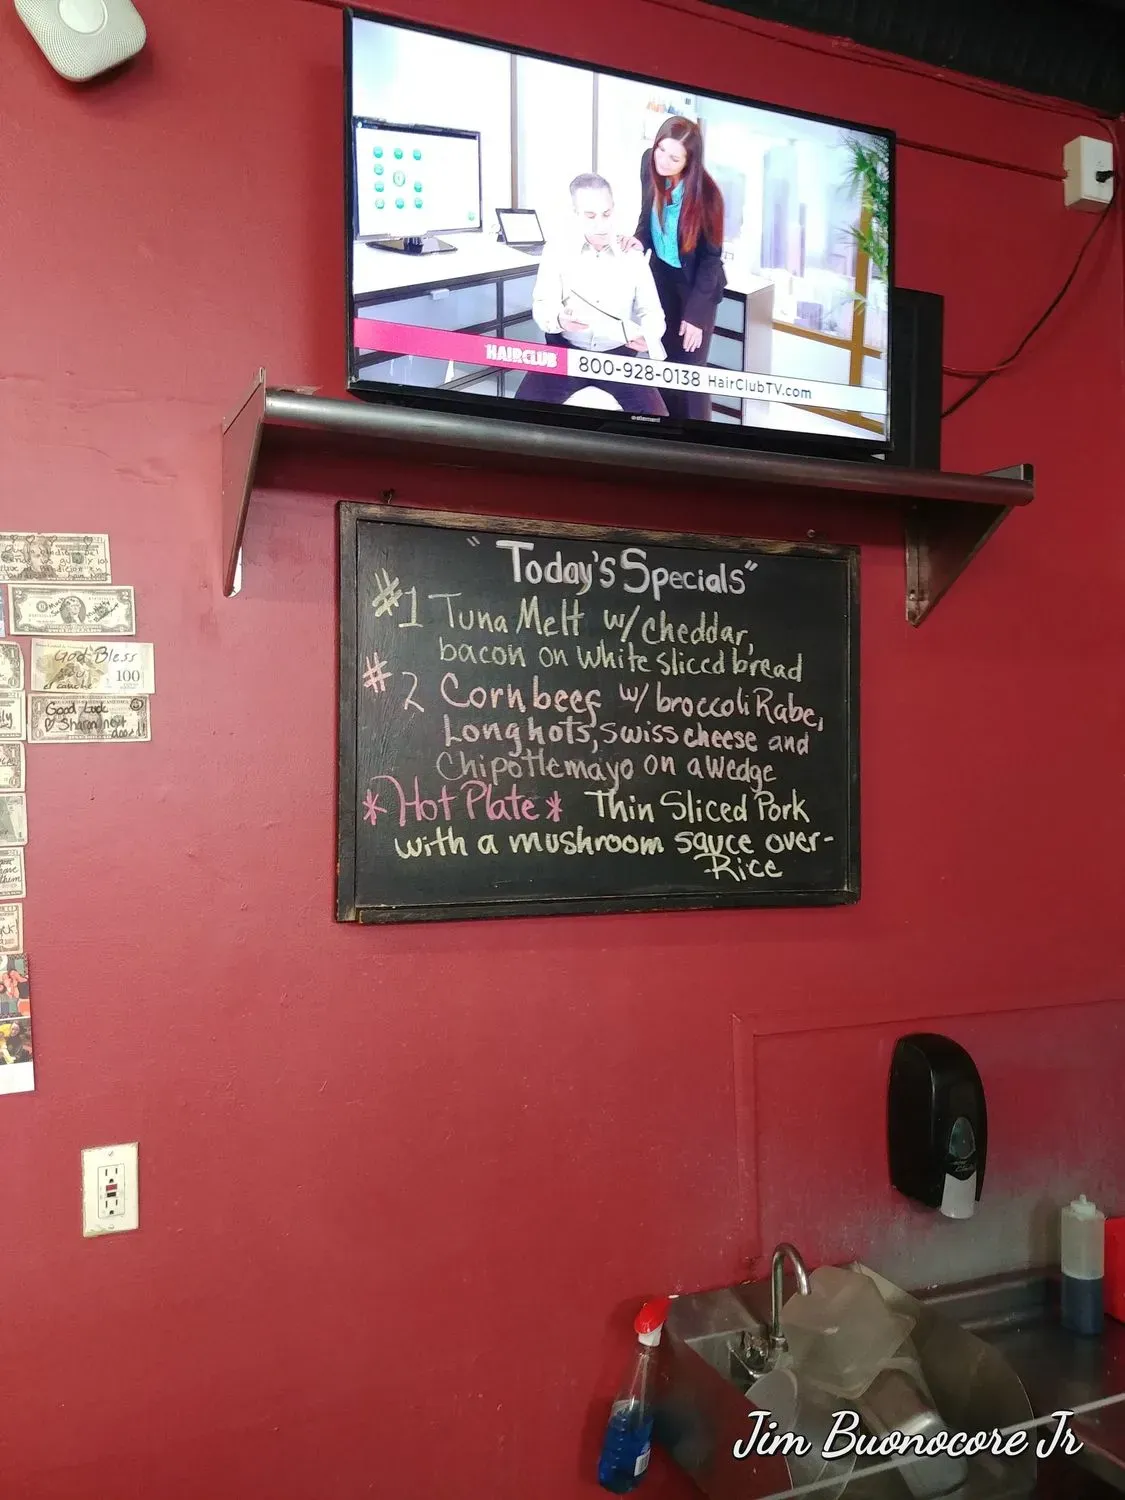 HAIRCLUB 800-928-0138 HairClubTV.com
element
"Today's Specials"
#1 Tuna Melt w/ cheddar,
bacon on white sliced bread
#2 Cornbeef w/ broccoli Rabe,
Longhots, swiss cheese and
Chipotle mayo on a wedge
*Hot Plate* Thin Sliced Pork
with a mushroom sauce over-
Rice
God Bless
you
100
Good Luck
Jim Buonocore Jr